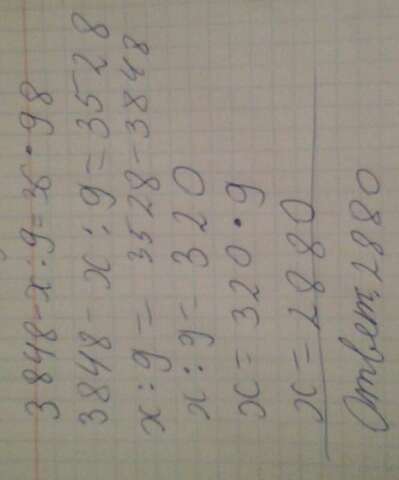 3848-х:9=36·98
3848-х:9=3528
х:9=3528-3848
х:9=320
х=320·9
х=2880
Ответ: 2880